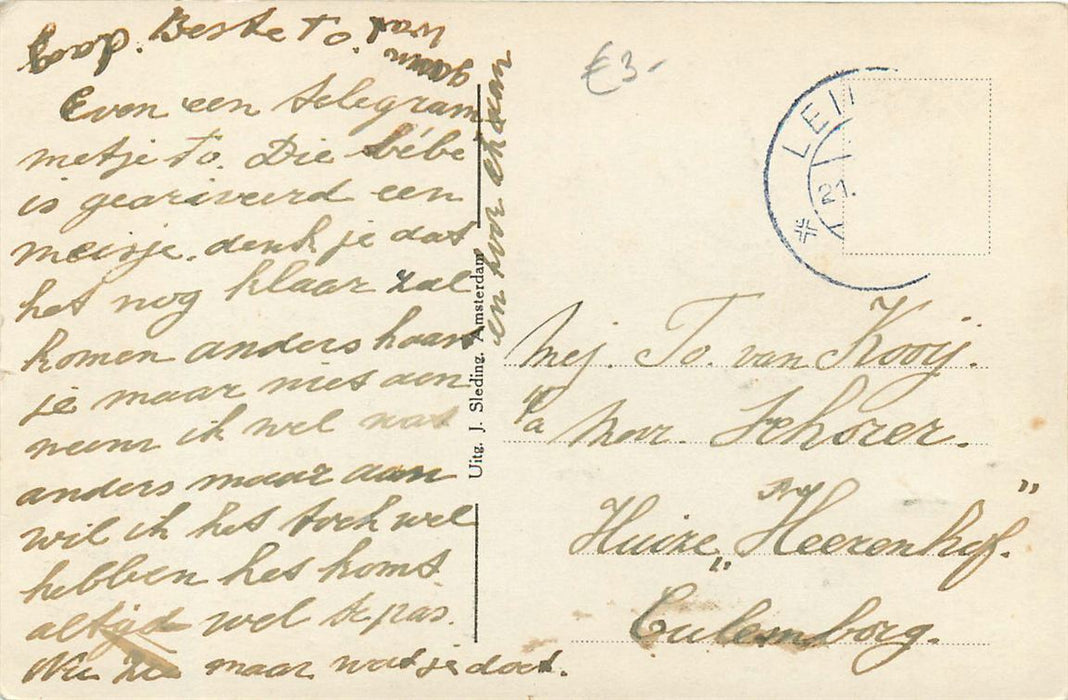 Beste To.
Even een telegram
metje To. Die bébé
is geariveerd een
meisje. denk je dat
het nog klaar zal
komen anders haast
je maar niet dan
neem ik wel wat
anders maar aan
wil ik het toch wel
hebben het komt
altijd wel te pas.
Nu zie maar wat je doet.
daag.
Uitg. J. Sleding. Amsterdam
€3-
LEI
21.
Mej. To. van Kooij.
p/a Mevr. Schorer.
Huize "Heerenhof."
Culemborg.